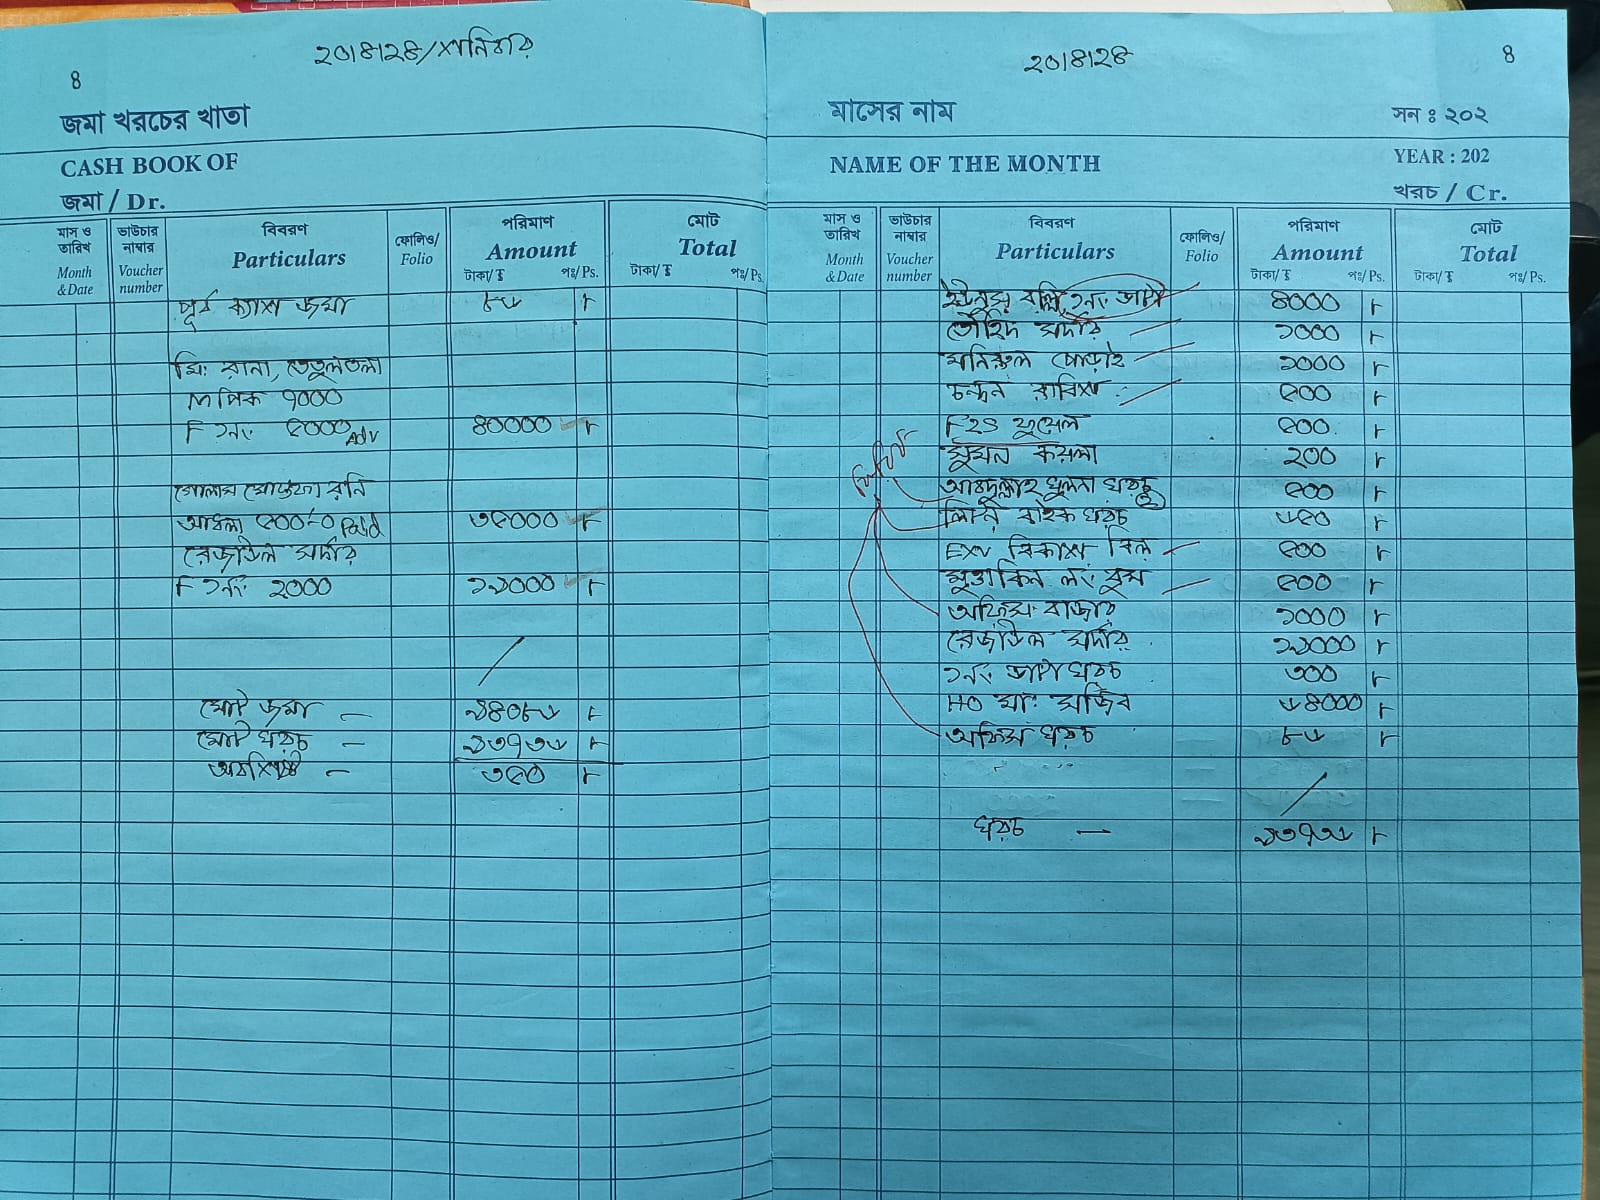 ২০/৪/২৪/শনিবার
৪
জমা খরচের খাতা
CASH BOOK OF
জমা / Dr.
মাস ও তারিখ
Month & Date
ভাউচার নাম্বার
Voucher number
বিবরণ
Particulars
ফোলিও/
Folio
পরিমাণ
Amount
টাকা/ ₹ পঃ/ Ps.
মোট
Total
টাকা/ ₹ পঃ/ Ps.
পূর্ব ক্যাশ জমা ৮৬
মিঃ রানা, তেতুলতলা
M পিক ৭০০০
F ১নং ৫০০০ Adv ৪০০০০
গোলাম মোস্তফা রনি
আধলা ৫০০০ Paid ৩৫০০০
রেজাউল সর্দার
F ১নং ২০০০ ১৯০০০
মোট জমা — ৯৪০৮৬
মোট খরচ — ৯৩৭৩৬
অবশিষ্ট — ৩৫০
২০/৪/২৪
৪
মাসের নাম
সন ঃ ২০২
NAME OF THE MONTH
YEAR : 202
খরচ / Cr.
মাস ও তারিখ
Month & Date
ভাউচার নাম্বার
Voucher number
বিবরণ
Particulars
ফোলিও/
Folio
পরিমাণ
Amount
টাকা/ ₹ পঃ/ Ps.
মোট
Total
টাকা/ ₹ পঃ/ Ps.
ইউনুস বল্লি, ১নং ভাটা ৪০০০
তৌহিদ সর্দার ১০০০
মনিরুল গোড়াই ১০০০
চন্দন রাবিশ ৫০০
F২S ফুয়েল ৫০০
সুমন কয়লা ২০০
আবদুল্লাহ খুলনা খরচ ৫০০
লিটন বাইক খরচ ৬৫০
EXV বিকাশ বিল ৫০০
মুত্তাকিন লং বুম ৫০০
অফিস বাজার ১০০০
রেজাউল সর্দার ১৯০০০
১নং ভাটা খরচ ৩০০
HO মাঃ সজিব ৬৪০০০
অফিস খরচ ৮৬
খরচ — ৯৩৭৩৬